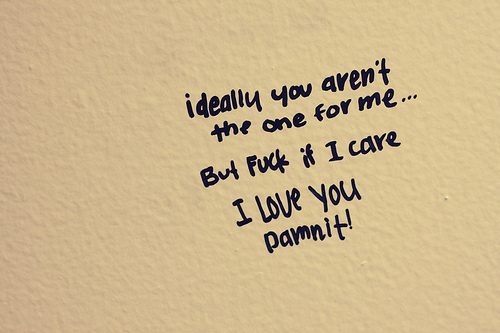 ideally you aren't
the one for me...
But Fuck if I care
I love you
Damnit!